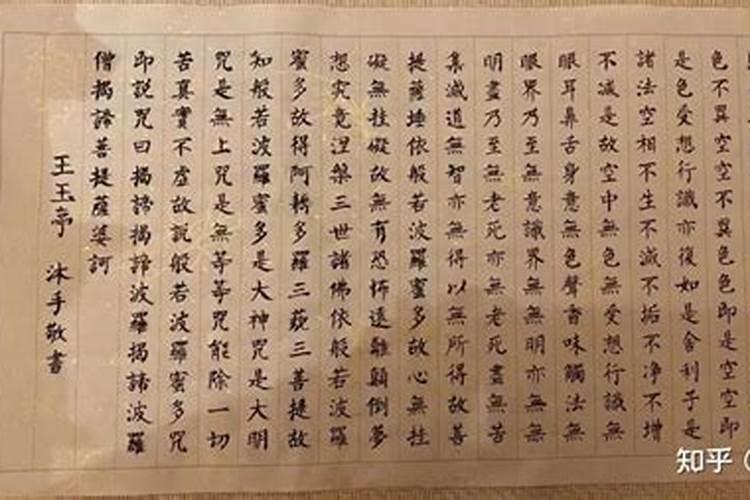 色不異空空不異色色即是空空即
是色受想行識亦復如是舍利子是
諸法空相不生不滅不垢不净不增
不減是故空中無色無受想行識無
眼耳鼻舌身意無色聲香味觸法無
眼界乃至無意識界無無明亦無無
明盡乃至無老死亦無老死盡無苦
集滅道無智亦無得以無所得故菩
提薩埵依般若波羅蜜多故心無挂
礙無挂礙故無有恐怖遠離顛倒夢
想究竟涅槃三世諸佛依般若波羅
蜜多故得阿耨多羅三藐三菩提故
知般若波羅蜜多是大神咒是大明
咒是無上咒是無等等咒能除一切
苦真實不虛故説般若波羅蜜多咒
即説咒曰揭諦揭諦波羅揭諦波羅
僧揭諦菩提薩婆訶
王玉亭 沐手敬書
知乎